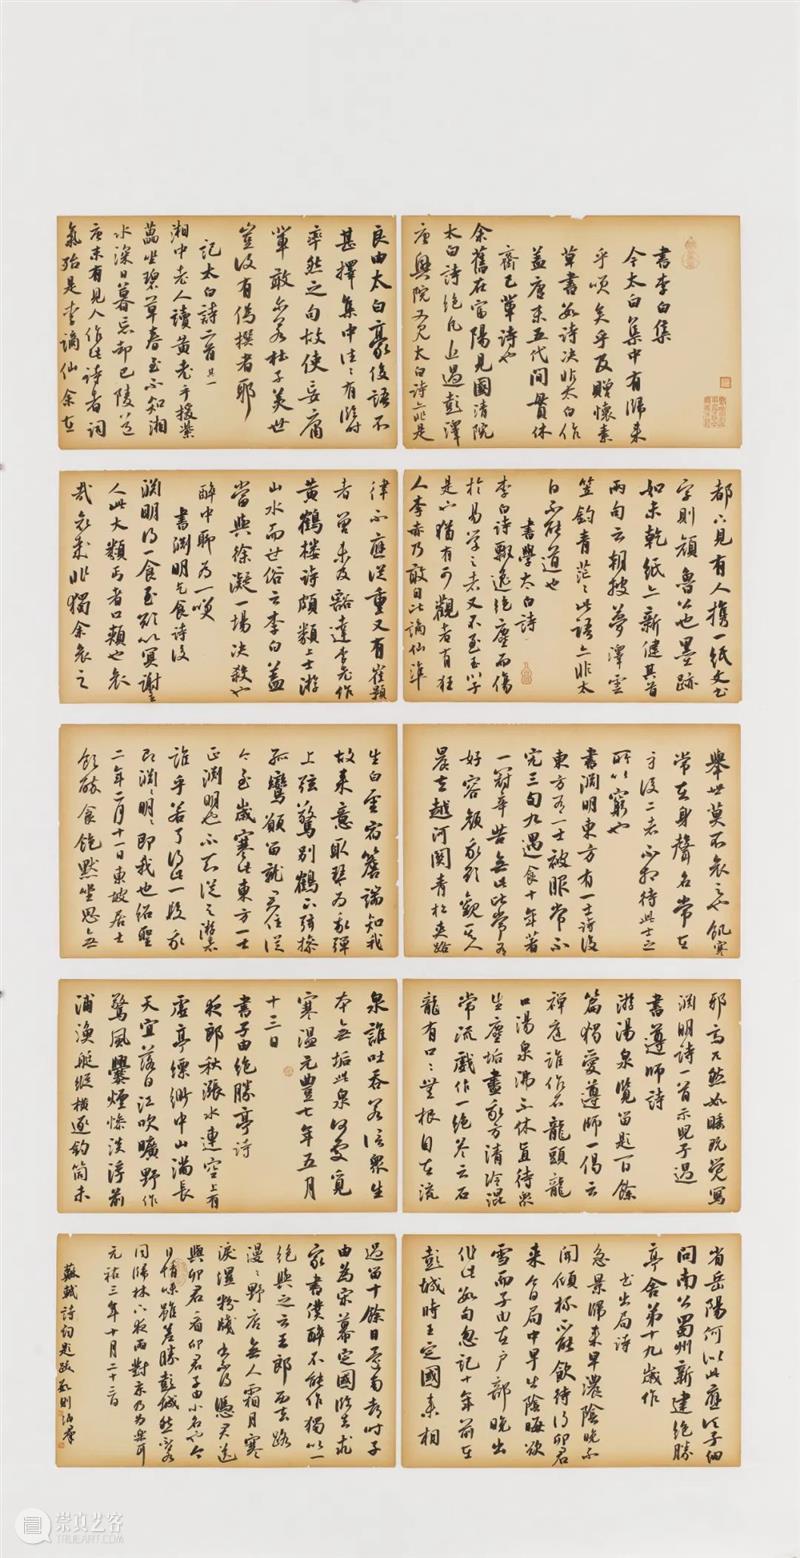 書李白集
今太白集中有歸來
乎笑矣乎及贈懷素
草書數詩決非太白作
蓋唐末五代間貫休
齊己輩詩也
余舊在富陽見國清院
太白詩絕凡近過彭澤
唐興院又見太白詩亦非是
良由太白豪俊語不
甚擇集中往々有臨時
率然之句故使妄庸
輩敢爾若杜子美世
豈復有偽撰者耶
記太白詩二首其一
湘中老人讀黃老手援紫
藟坐碧草春至不知湘
水深日暮忘卻巴陵道
唐末有見人作是詩者詞
氣殆是李謫仙余在
都下見有人携一紙文書
字則顏魯公也墨跡
如未乾紙亦新健其首
兩句云朝披夢澤雲
笠釣青茫々此語亦非太
白不能道也
書學太白詩
李白詩飄逸絕塵而傷
於易學之者又不至玉川子
是也猶有可觀者有狂
人李赤乃敢自比謫仙準
律不應從重又有崔顥
者曾未及豁達李老作
黃鶴樓詩頗類上士游
山水而世俗云李白蓋
當與徐凝一場決殺也
醉中聊為一笑
書淵明乞食詩後
淵明得一食至欲以冥謝主
人此大類丐者口頰也哀
哉哀哉非獨余哀之
舉世莫不哀之也飢寒
常在身聲名常在
身後二者不相待此士之
所以窮也
書淵明東方有一士詩後
東方有一士被服常不
完三旬九遇食十年著
一冠辛苦無此比常有
好容顏我欲觀其人
晨去越河關青松夾路
生白雲宿簷端知我
故來意取琴為我彈
上弦驚別鶴下弦操
孤鸞願留就君住從
今至歲寒此東方一士
正淵明也不知從之游者
誰乎若了得此一段我
即淵明々即我也紹聖
二年二月十一日東坡居士
飲醉食飽默坐思無
邪兀然如睡既覺寫
淵明詩一首示兒子過
書遵師詩
游湯泉覽留題百餘
篇獨愛遵師一偈云
禪庭誰作石龍頭龍
口湯泉沸不休直待眾
生塵垢盡我方清冷混
常流戲作一絕答云石
龍有口々無根自在流
泉誰吐吞若信眾生
本無垢此泉何處覓
寒溫元豐七年五月
十三日
書子由絕勝亭詩
夜郎秋漲水連空上有
虛亭縹緲中山滿長
天宜落日江吹曠野作
驚風爨煙慘淡浮前
浦漁艇縱橫逐釣筒未
省岳陽何似此應須子細
問南公蜀州新建絕勝
亭舍弟十九歲作
書出局詩
急景歸來早濃陰晚不
開傾杯不能飲待得卯君
來今日局中早出陰晦欲
雪而子由在戶部晚出
作此數句忽記十年前在
彭城時王定國來相
過留十餘日還南都時子
由為宋幕定國臨去求
家書僕醉不能作獨以一
絕與之云王郎西去路
漫々野店無人霜月寒
淚濕粉牋書不得憑君送
與卯君看卯君子由小名也今
日情味雖差勝彭城然不若
同歸林下夜雨對床乃為樂耳
元祐三年十月二十三日
蘇軾詩詞題跋數則
崇真艺客
TRUEART.COM